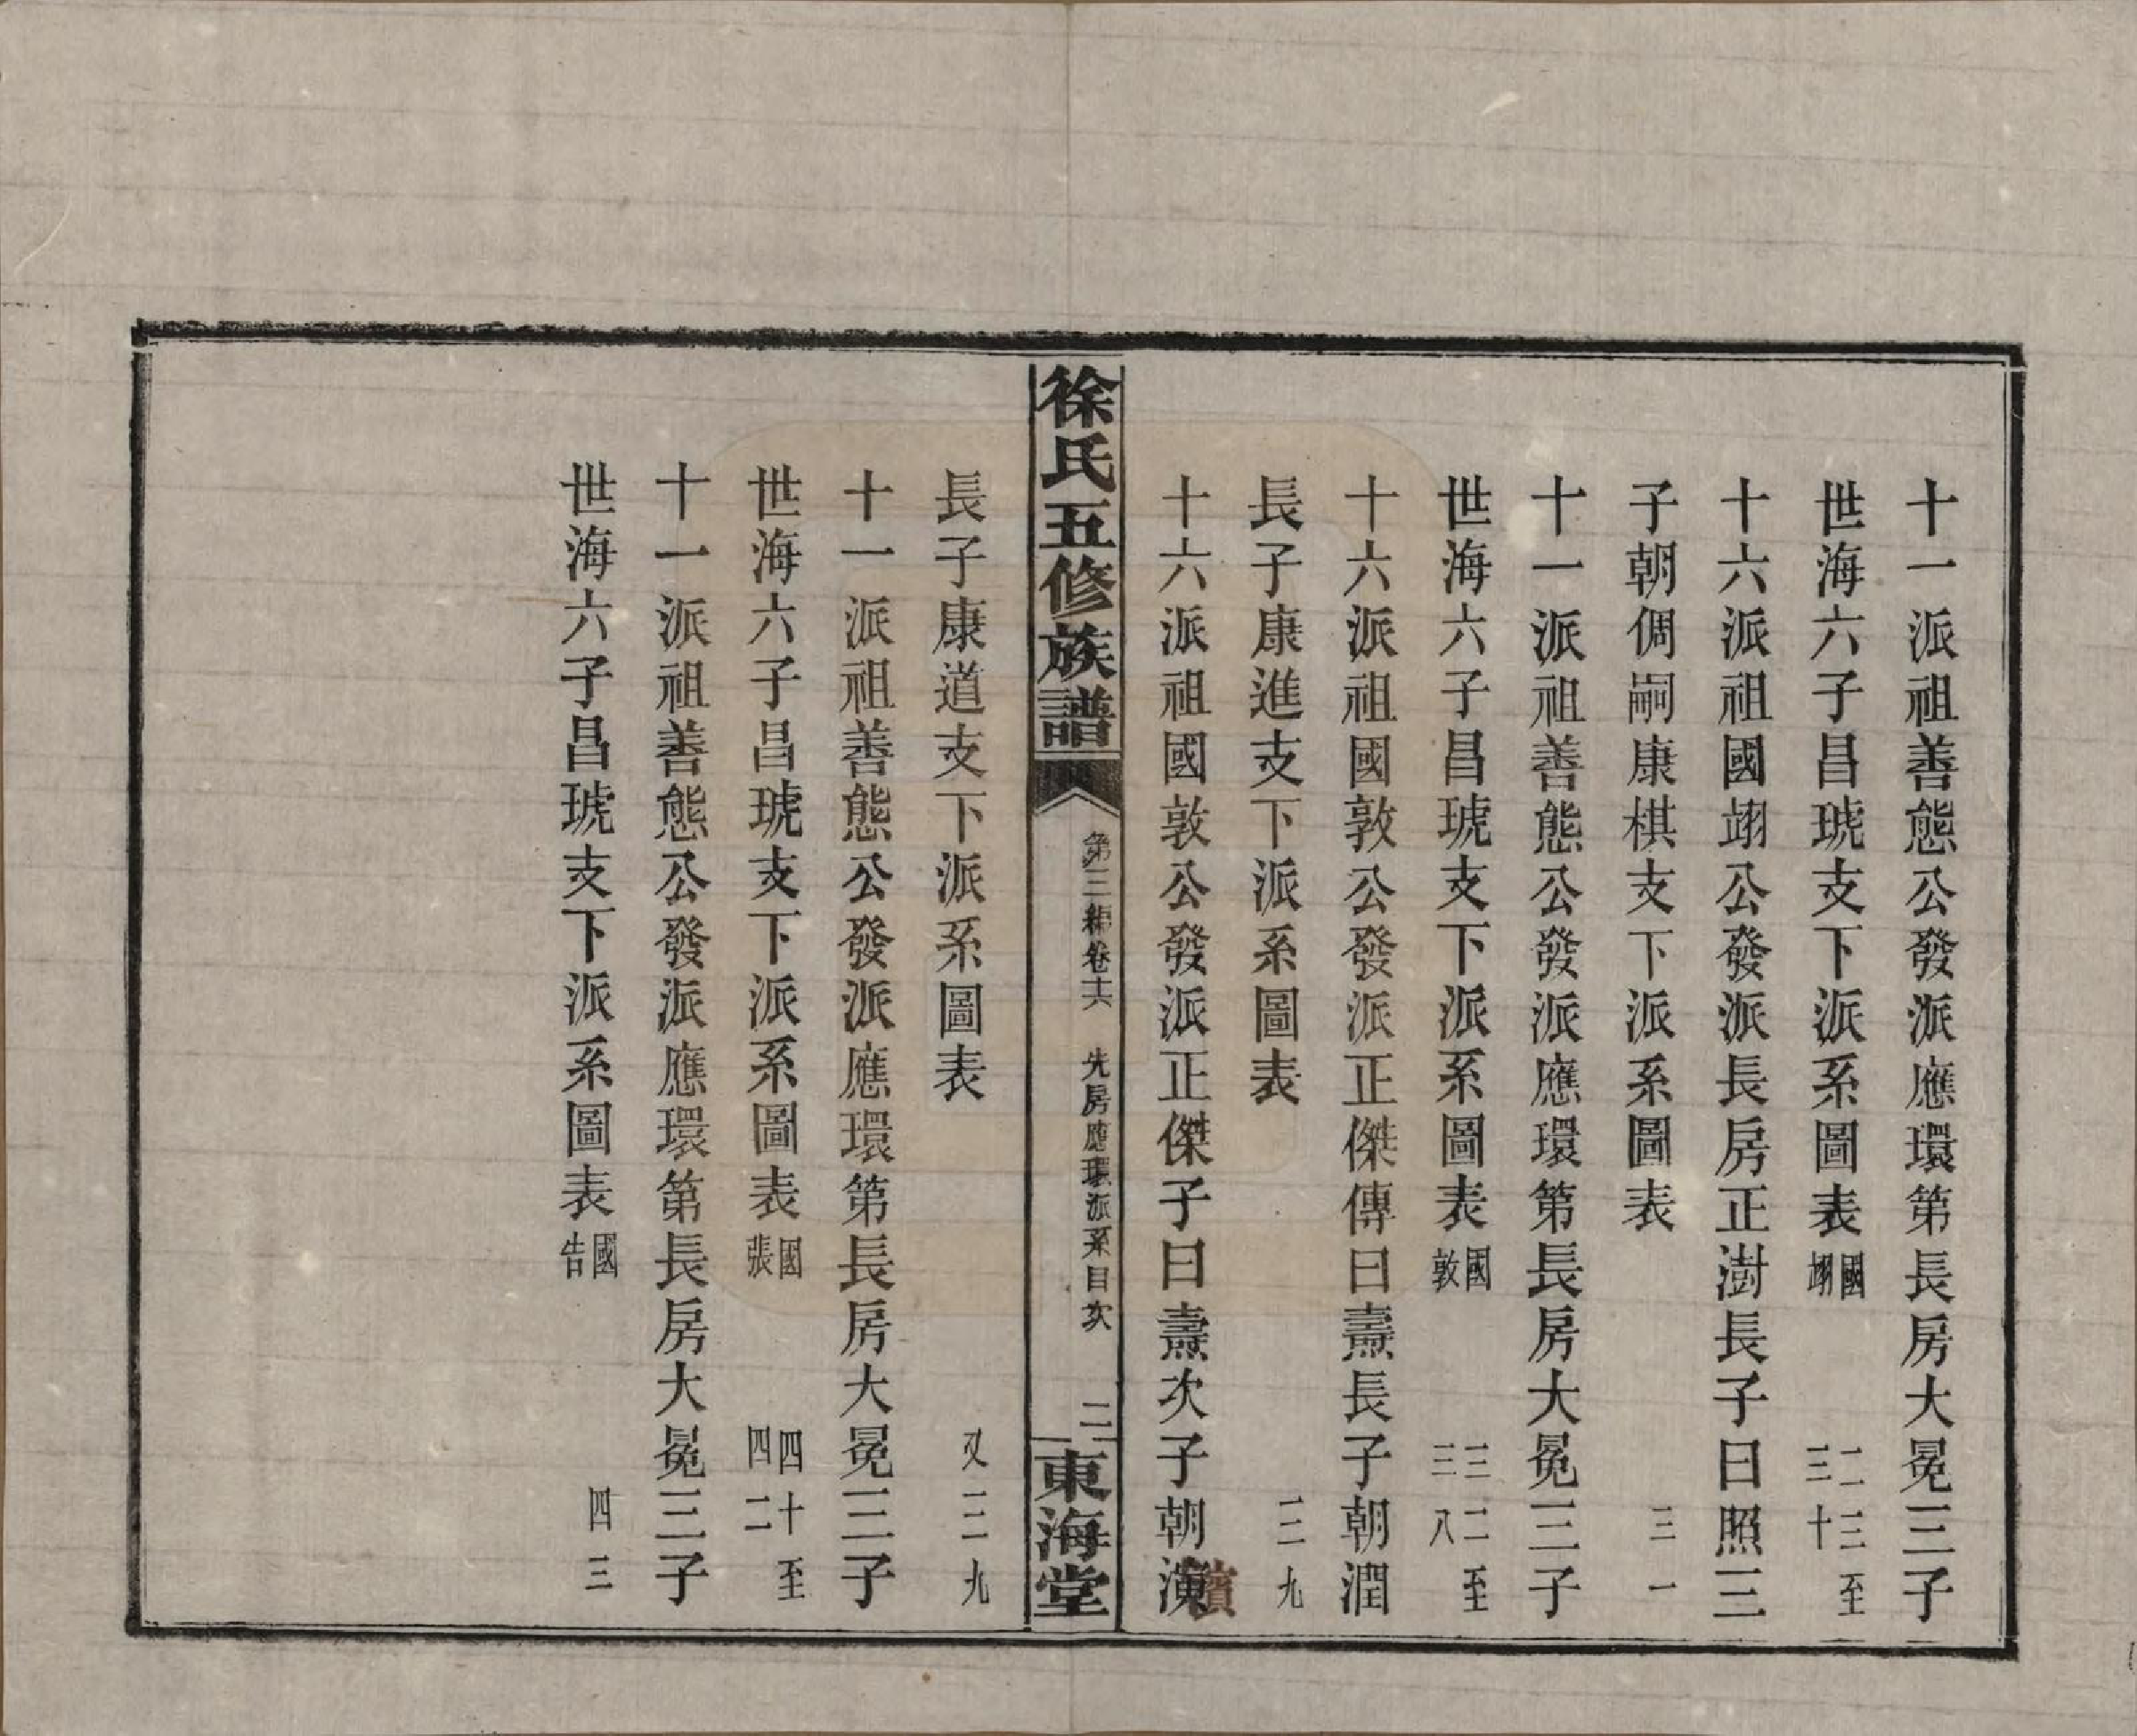 十一派祖善態公發派應環第長房大冕三子
世海六子昌琥支下派系圖表國翊 二三至三十
十六派祖國翊公發派長房正澍長子曰照三
子朝倜嗣康棋支下派系圖表 三一
十一派祖善態公發派應環第長房大冕三子
世海六子昌琥支下派系圖表國敦 三二至三八
十六派祖國敦公發派正傑傳曰燾長子朝潤
長子康進支下派系圖表 三九
十六派祖國敦公發派正傑子曰燾次子朝演
濱
徐氏五修族譜 第三編卷十六 先房應環派系目次 二 東海堂
長子康道支下派系圖表 又三九
十一派祖善態公發派應環第長房大冕三子
世海六子昌琥支下派系圖表國張 四十至四二
十一派祖善態公發派應環第長房大冕三子
世海六子昌琥支下派系圖表國告 四三